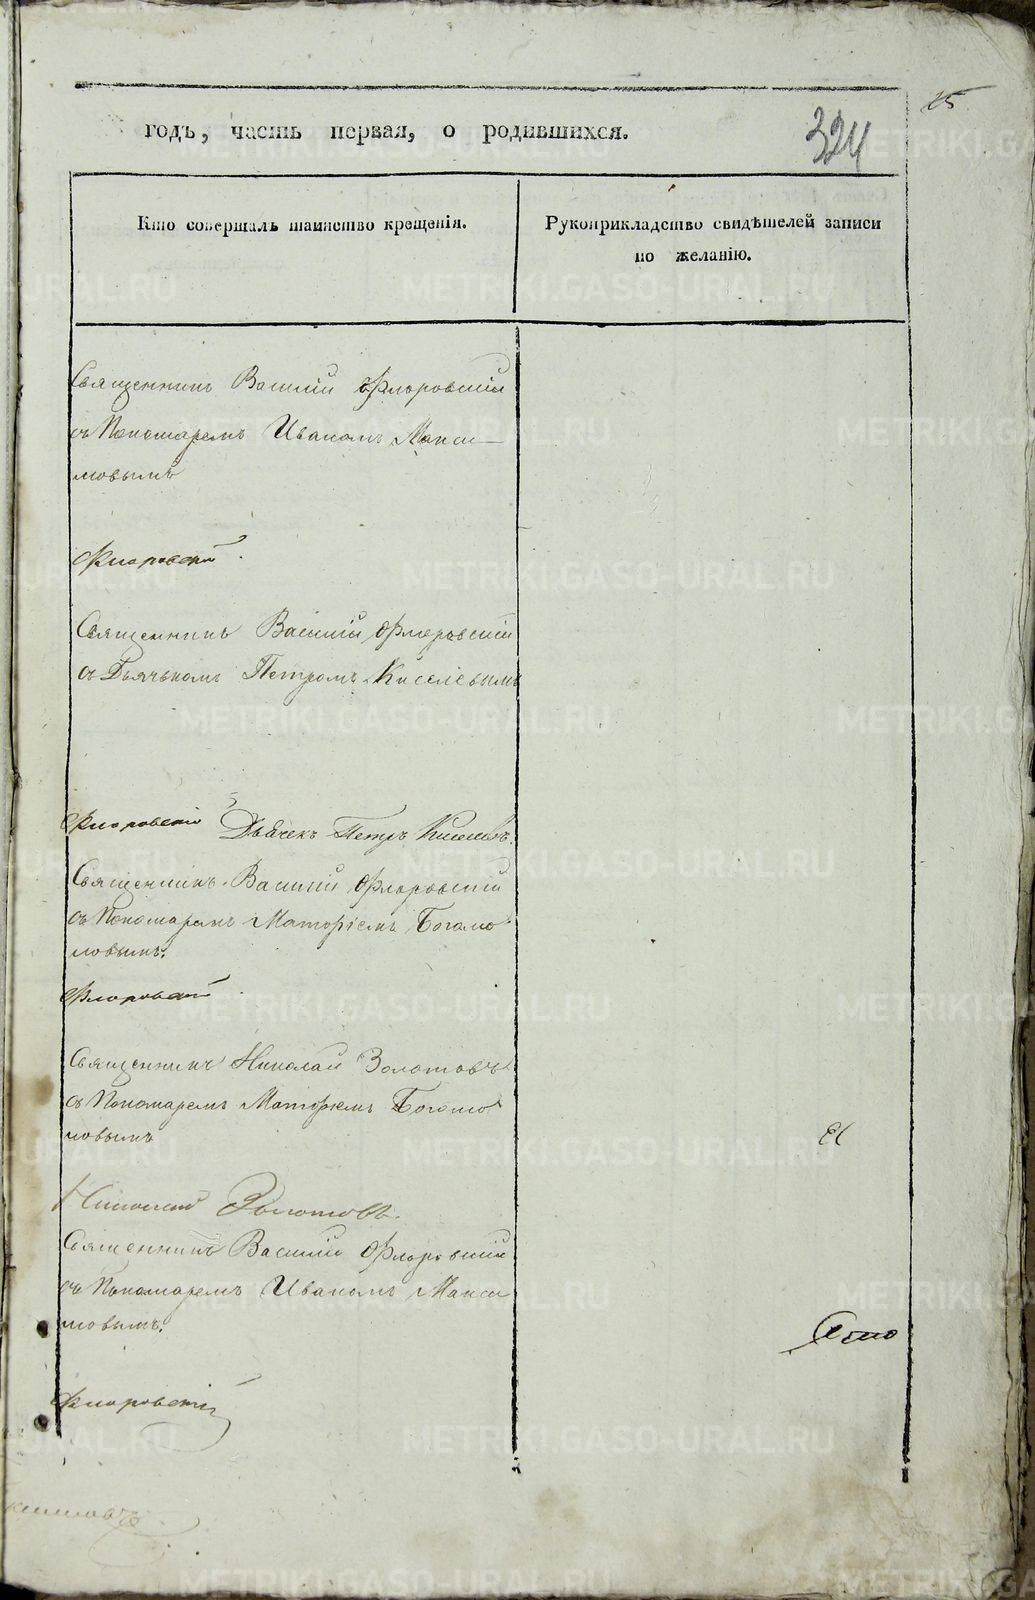 25
324
годъ, часть первая, о родившихся.
Кто совершалъ таинство крещенія.
Рукоприкладство свидѣтелей записи
по желанію.
Священникъ Василій Флоровскій
съ Пономаремъ Иваномъ Макси-
мовымъ
Флоровскій.
Священникъ Василій Флоровскій
съ Дьячькомъ Петромъ Киселёвымъ
Флоровскій Дьячекъ Петръ Киселевъ.
Священникъ Василій Флоровскій
съ Пономаремъ Маторіемъ Богомо
ловымъ.
Флоровскій.
Священникъ Николай Золотовъ
съ Пономаремъ Маторіемъ Богомо
ловымъ
Николай Золотовъ.
Священникъ Василій Флоровскій
съ Пономаремъ Иваномъ Макси
мовымъ.
Флоровскій
METRIKI.GASO-URAL.RU